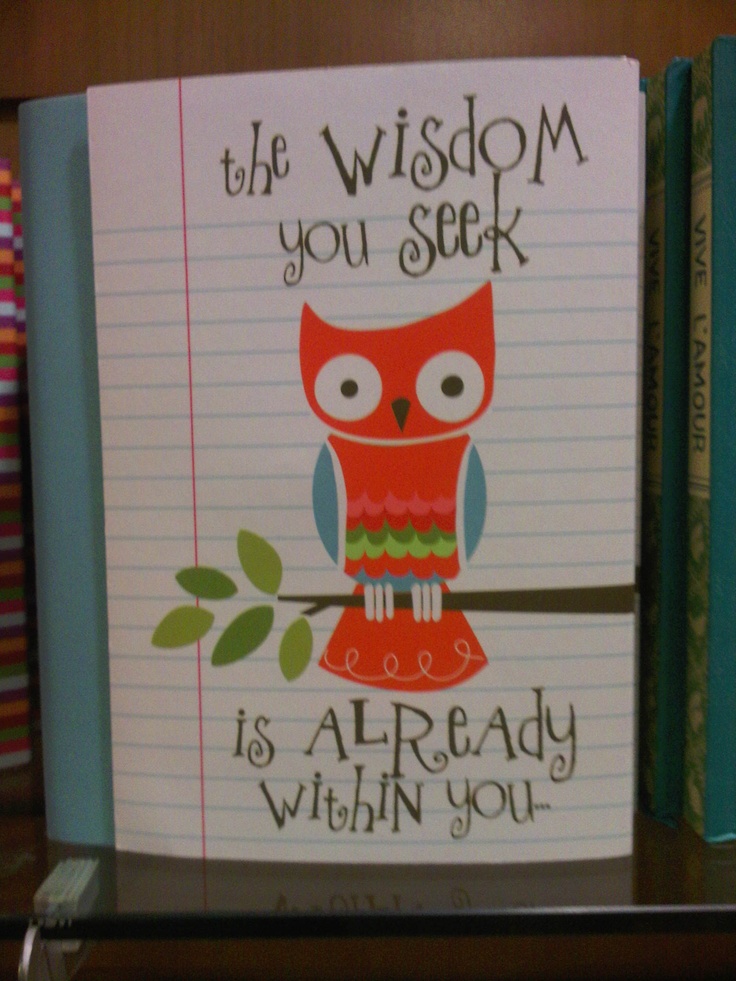 the WisdOM
you seek
is ALReAdy
withiN you...
VIVE L'AMOUR
VIVE L'AMOUR